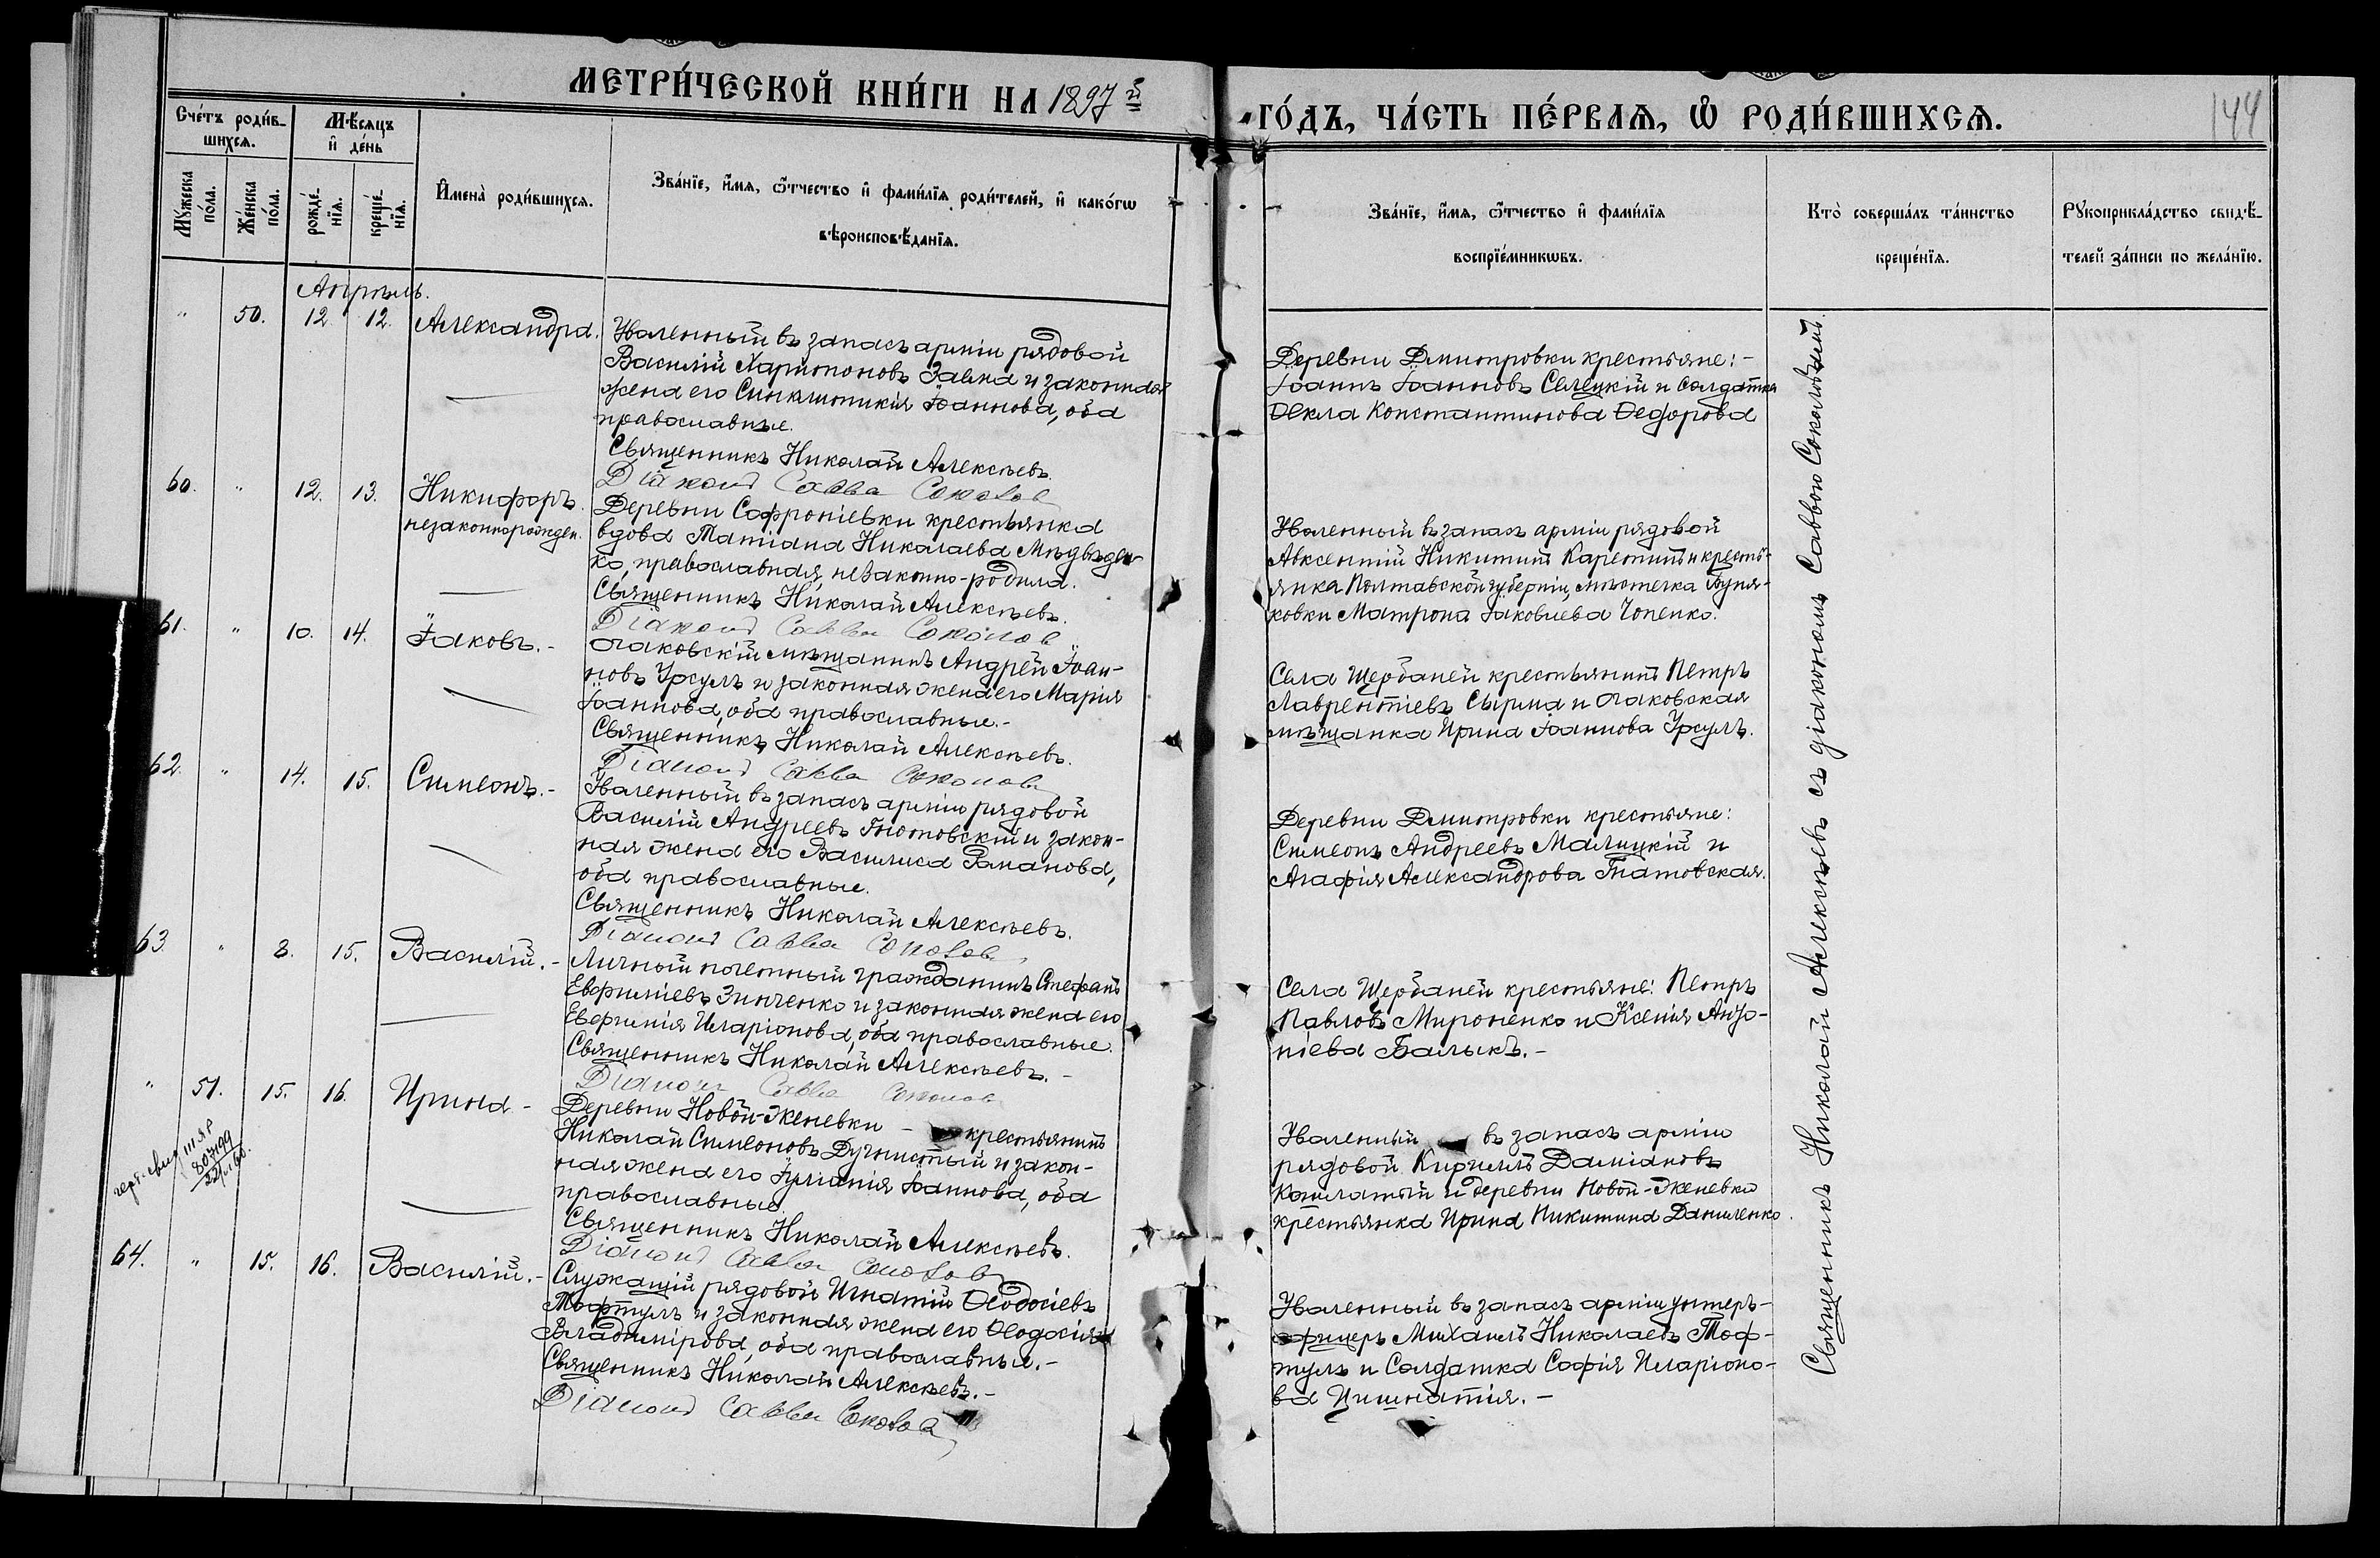 МЕТРИ́ЧЕСКОЙ КНИ́ГИ НА 1897й
ГО́ДЪ, ЧА́СТЬ ПЕ́РВАѦ, Ѡ РОДИ́ВШИХСѦ.
144
Сче́тъ роди́в-
шихсѧ.
Мѣ́сѧцъ
и҆ де́нь
Мꙋжеска
по́ла.
Же́нска
по́ла.
рожде́-
нїѧ.
креще́-
нїѧ.
И҆мена̀ роди́вшихсѧ.
Зва́нїе, и҆́мѧ, ѻ҆́тчество и҆ фами́лїѧ роди́телей, и҆ како́гѡ
вѣроисповѣ́данїѧ.
Зва́нїе, и҆́мѧ, ѻ҆́тчество и҆ фами́лїѧ
воспрїе́мникѡвъ.
Кто̀ соверша́лъ та́инство
креще́нїѧ.
Рꙋкоприкла́дство свидѣ́-
телей за́писи по жела́нїю.
Апрѣль.
" 50. 12 12. Александра.
Уволенный въ запасъ арміи рядовой
Василій Харитоновъ Заика и законная
жена его Синклитикія Іоаннова, оба
православные.
Священникъ Николай Алексѣевъ.
Діаконъ Савва Соколов
Деревни Дмитровки крестьяне: -
Іоаннъ Іоанновъ Селецкій и солдатка
Ѳекла Константинова Ѳедорова
60. " 12. 13. Никифоръ.
незаконнорожден.
Деревни Софроніевки крестьянка
вдова Татіана Николаева Медвѣден-
ко, православная, незаконно-родила.
Священникъ Николай Алексѣевъ.
Діаконъ Савва Соколов
Уволенный въ запасъ арміи рядовой
Авксентій Никитинъ Каретинъ и кресть-
янка Полтавской губерніи, мѣстечка
ковки Матрона Іаковлева Чопенко.
61. " 10. 14. Іаковъ. -
Очаковскій мѣщанинъ Андрей Іоан-
новъ Урсулъ и законная жена его Марія
Іоаннова, оба православные. -
Священникъ Николай Алексѣевъ.
Діаконъ Савва Соколов
Села Щербаней крестьянинъ Петръ
Лаврентіевъ Сырма и Очаковская
мѣщанка Ирина Іоаннова Урсулъ.
62. " 14. 15. Симеонъ. -
Уволенный въ запасъ арміи рядовой
Василій Андреевъ Гнотовскій и закон-
ная жена его Василиса Романова,
оба православные.
Священникъ Николай Алексѣевъ.
Діаконъ Савва Соколов
Деревни Дмитровки крестьяне:
Симеонъ Андреевъ Малицкій и
Агафія Александрова Гнатовская.
63. " 8. 15. Василій. -
Личный почетный гражданинъ Стефанъ
Евфиміевъ Зинченко и законная жена его
Евфимія Иларіонова, оба православные.
Священникъ Николай Алексѣевъ. -
Діаконъ Савва Соколов
Села Щербаней крестьяне: Петръ
Павловъ Мироненко и Ксенія
ніева Балыкъ. -
" 51. 15. 16. Ирина -
Деревни Новой-Женевки - крестьянинъ
Николай Симеоновъ Духнистый и закон-
ная жена его Іуліанія Іоаннова, оба
православные.
Священникъ Николай Алексѣевъ.
Діаконъ Савва Соколов
Уволенный въ запасъ арміи
рядовой Кириллъ Даміановъ
Кошлатый и деревни Новой-Женевки
крестьянка Ирина Никитина Даниленко.
64. " 15. 16. Василій. -
Служащій рядовой Игнатій Ѳеодосіевъ
Тофтулъ и законная жена его Ѳеодосія
Владимірова, оба православные. -
Священникъ Николай Алексѣевъ. -
Діаконъ Савва Соколов
Уволенный въ запасъ арміи унтеръ-
офицеръ Михаилъ Николаевъ Тоф-
тулъ и Солдатка Софія Иларіоно-
ва Цишнатія. -
Священникъ Николай Алексѣевъ съ діакономъ Саввою Соколовымъ.